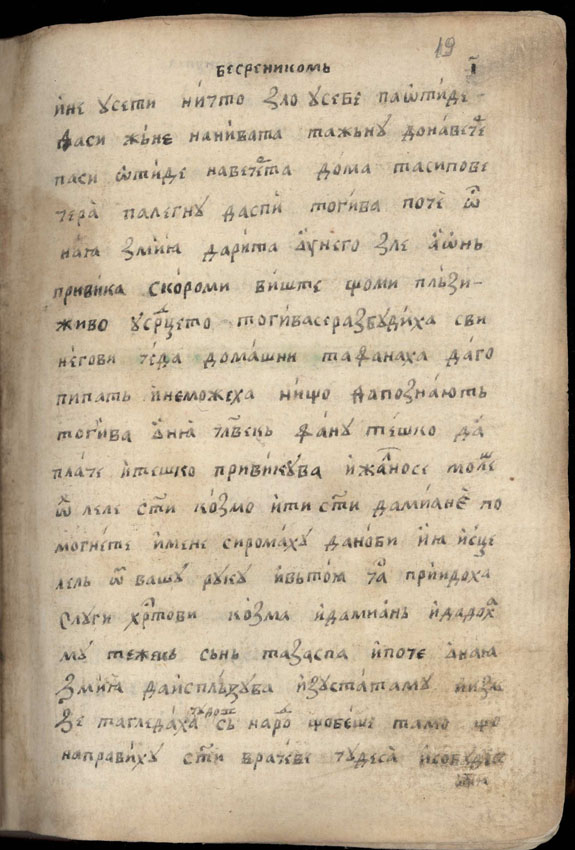 19
бесреникомь
ı҃
и҆не ꙋсети ни́тто ѕло ꙋсебе паѿти́де
фаси жьне нани́вата тажьнꙋ́ дона́ветⷬе
паси ѿти́де наветⷬета дома таси́пове
тера̀ палегнꙋ́ даспи̇̀ тоги́ва потѐ ѿ
наꙗ ѕмїꙗ дарита ꙋ҆него ѕле
приви́ка ско́роми ви́ште що́ми плъзи-
живо ꙋсрⷣцето тоги́васеразбꙋди́ха сви
не́гови те́да дома́шни тафана́ха да́го
пипать и҆немо́жеха ни́що дапозна́ють
тоги́ва ѻ҆нꙗ̀ тлⷡ҇екь фа́нꙋ те́шко да̀
пла́те и҆тешко приви́кꙋва и҆жа́лносе молеⷲ
ѿ леле ст҃и ко́змо и҆ти ст҃и дамиа́не по
могне́те и҆мене сирома́хꙋ дано́ви и҆ꙗ и҆сце
лель ѿ вашꙋ́ рꙋкꙋ̀ и҆вьто́ꙗ таⷨ прии́доха
слꙋги хрⷭ҇тови ко́зма и҆дамиа́нь и҆дадоха
мꙋ̀ те́жекь сьнь тазаспа и҆потѐ ѻ҆наꙗ
ѕмиꙗ̀ даи́сплъзꙋва и҆зꙋста́тамꙋ и҆изле
зе тагле́даха тꙋдоⷭ съ наро́ⷣ що́беше тамо що
напра́вихꙋ ст҃и вра́теве тꙋдеса̀